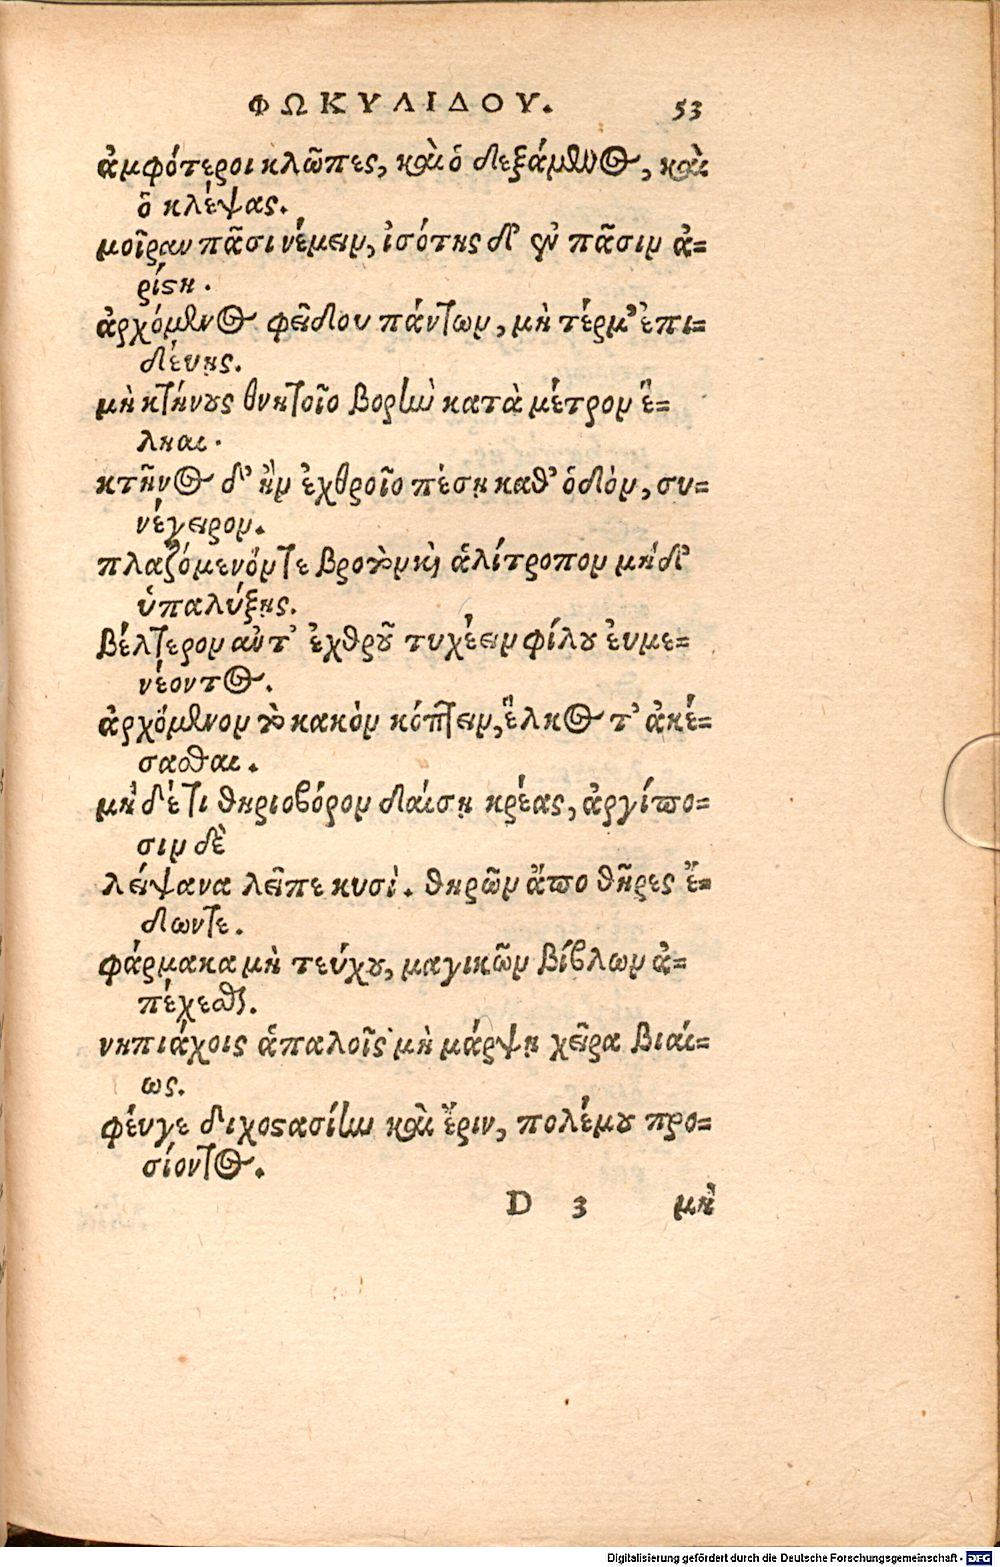 ΦΩΚΥΛΙΔΟΥ. 53
ἀμφότεροι κλῶπες, καὶ ὁ δεξάμενος, καὶ
ὁ κλέψας.
μοῖραν πᾶσι νέμειν, ἰσότης δ' ἐν πᾶσιν ἀ=
ρίστη.
ἀρχόμενος φείδου πάντων, μὴ τέρμ' ἐπι=
δεύῃς.
μὴ κτήνους θνητοῖο βορὴν κατὰ μέτρον ἕ=
ληαι.
κτῆνος δ' ἢν ἐχθροῖο πέσῃ καθ' ὁδὸν, συ=
νέγειρον.
πλαζόμενόν τε βροτὸν καὶ ἀλίτροπον μή δ'
ὑπαλύξῃς.
βέλτερον αὖτ' ἐχθροῦ τυχέειν φίλου εὐμε=
νέοντος.
ἀρχόμενον τὸ κακὸν κόπτειν, ἕλκος τ' ἀκέ=
σασθαι.
μὴ δέ τι θηριοβόρον δαίσῃ κρέας, ἀργίπο=
σιν δὲ
λείψανα λεῖπε κυσὶ. θηρῶν ἄπο θῆρες ἔ=
δωνται.
φάρμακα μὴ τεύχου, μαγικῶν βίβλων ἀ=
πέχεσθαι.
νηπιάχοις ἁπαλοῖς μὴ μάρψῃ χεῖρα βιαί=
ως.
φεύγε διχοστασίην καὶ ἔριν, πολέμου προ=
σίοντος.
D 3 μὴ
Digitalisierung gefördert durch die Deutsche Forschungsgemeinschaft - DFG